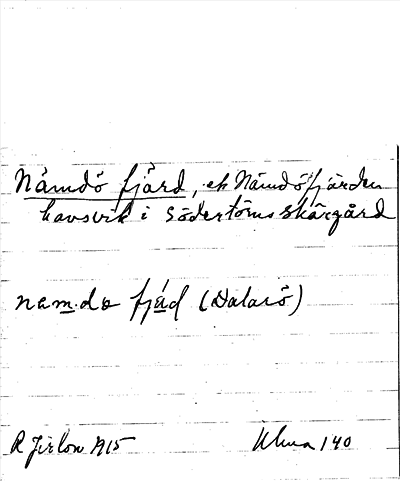 Nåmdö fjärd, ek Nämdöfjärden
havsvik i Södertörns skärgård
nam.do fjäd (Dalarö)
R Jirlow 1915 Ulma 140